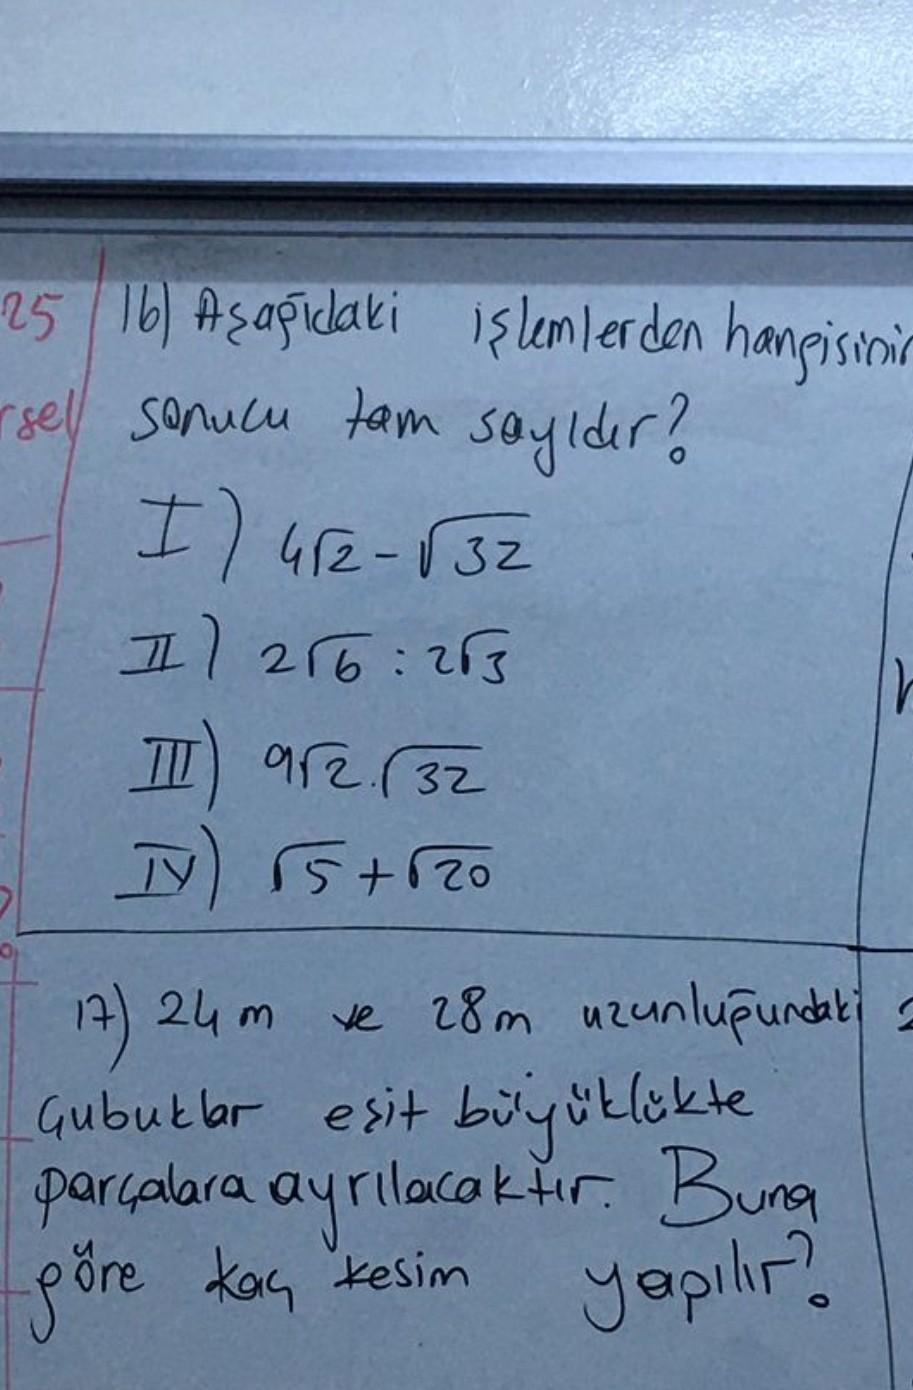 25
rsel
16) Aşağıdaki işlemlerden hangisinin
sonucu tam sayıdır?
I) 4√2 - √32
II) 2√6 : 2√3
III) 9√2 . √32
IV) √5 + √20
17) 24 m ve 28 m uzunluğundaki
çubuklar eşit büyüklükte
parçalara ayrılacaktır. Buna
göre kaç kesim yapılır?